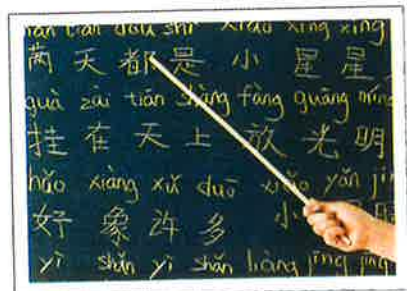 tiān dōu shì xiǎo xīng xīng
天 都 是 小 星 星
guà zài tiān shàng fàng guāng míng
挂 在 天 上 放 光 明
hǎo xiàng xǔ duō xiǎo yǎn jīn
好 象 许 多 小
yì shǎn yì shǎn liàng jīng jīng